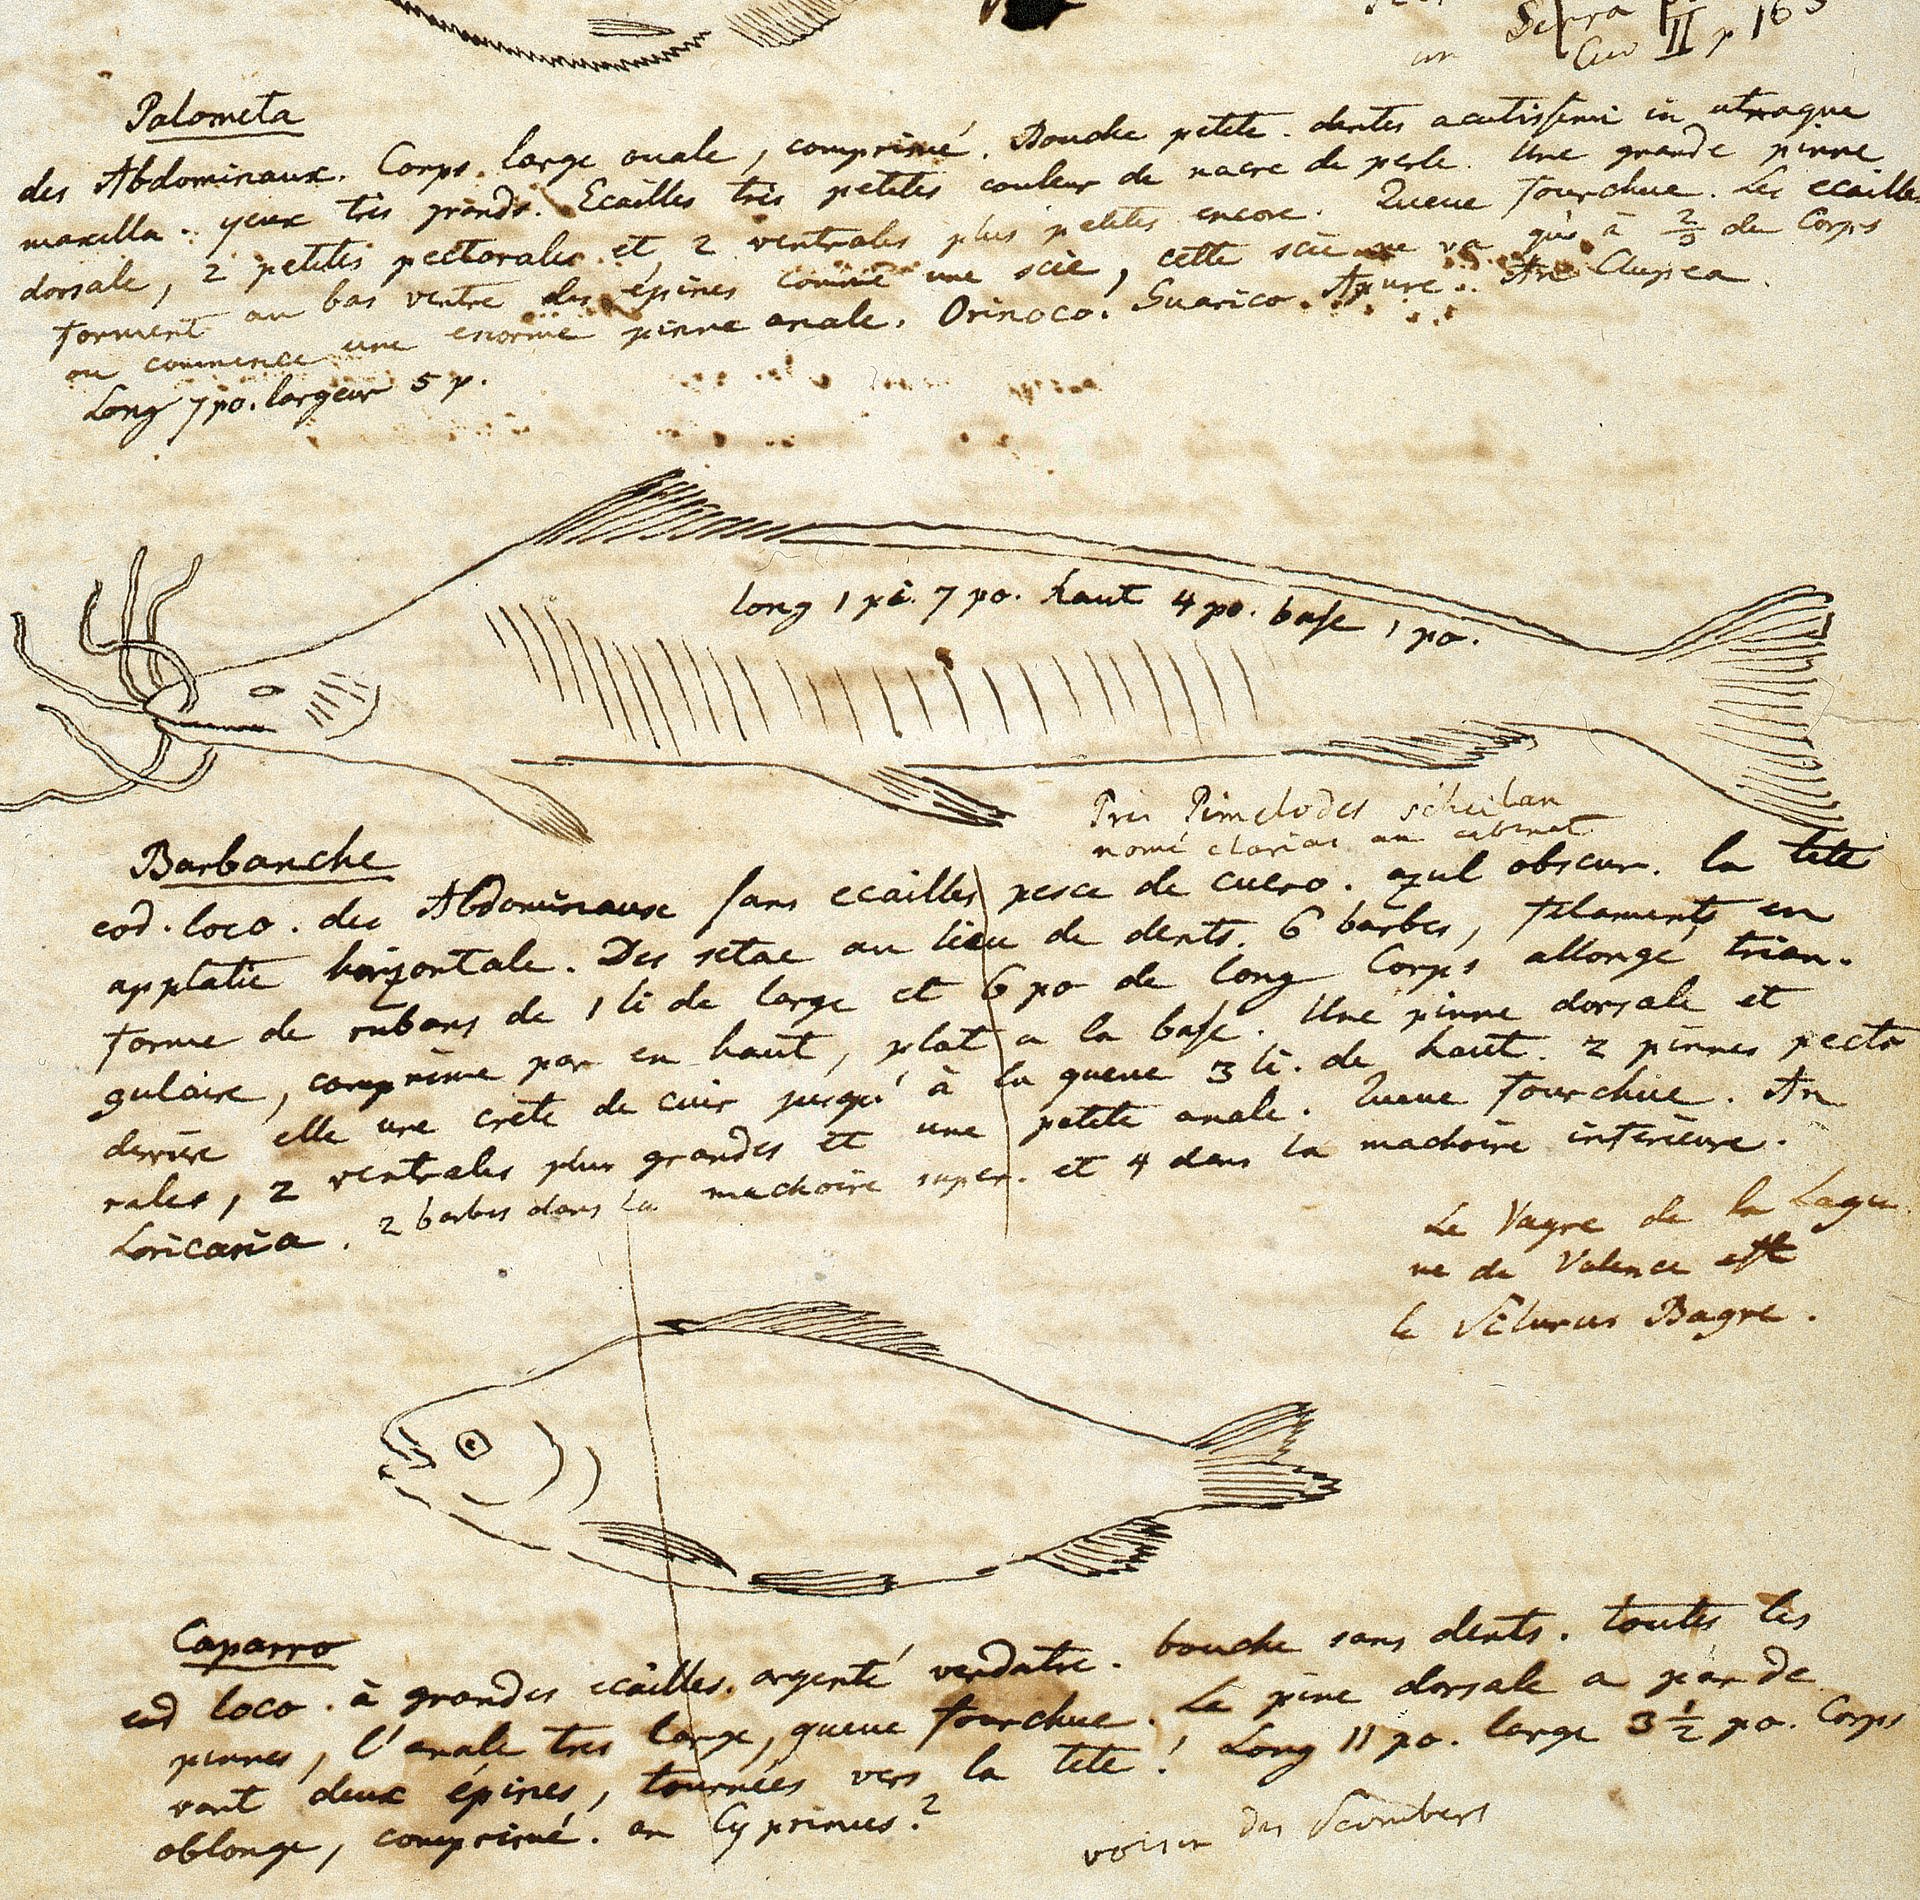 Serra p.
Cuv II p 163
an
Palometa
des Abdominaux. Corps large ovale, comprimé. Bouche petite. dentes acutissimi in utraque
maxilla. yeux très grands. Ecailles très petites couleur de nacre de perle. Une grande pinne
dorsale, 2 petites pectorales et 2 ventrales plus petites encore. Queue fourchue. Les ecailles
forment au bas ventre des épines comme une scie, cette scie ne va qu'à 2/3 du Corps
ou commence une enorme pinne anale. Orinoco. Guarico. Apure. An Clupea.
Long 7 po. largeur 5 p.
long 1 pi. 7 po. haut 4 po. base 1 po.
Pres Pimelodes scheilan
nomé clarias au cabinet
Barbanche
eod. loco. des Abdominaux sans ecailles pesce de cuero. azul obscur. la tete
applatie horizontale. Des setae au lieu de dents. 6 barbes, filaments en
forme de rubans de 1 li de large et 6 po de long Corps allongé trian-
gulaire, comprimé par en haut, plat a la base. Une pinne dorsale et
derrière elle une crete de cuir jusqu'à la queue 3 li. de haut. 2 pinnes pecto
rales, 2 ventrales plus grandes et une petite anale. Queue fourchue. An
Loricaria. 2 barbes dans la machoire super. et 4 dans la machoire inferieure.
Le Vagre de la Lagu
ne de Valence est
le Silurus Bagre.
Caparro
eod loco. à grandes ecailles. argenté verdatre. bouche sans dents. toutes les
pinnes, l'anale tres large, queue fourchue. La pine dorsale a par de
vant deux épines, tournées vers la tete! Long 11 po. large 3 1/2 po. Corps
oblonge, comprimé. an Cyprinus?
voisin des Scombers